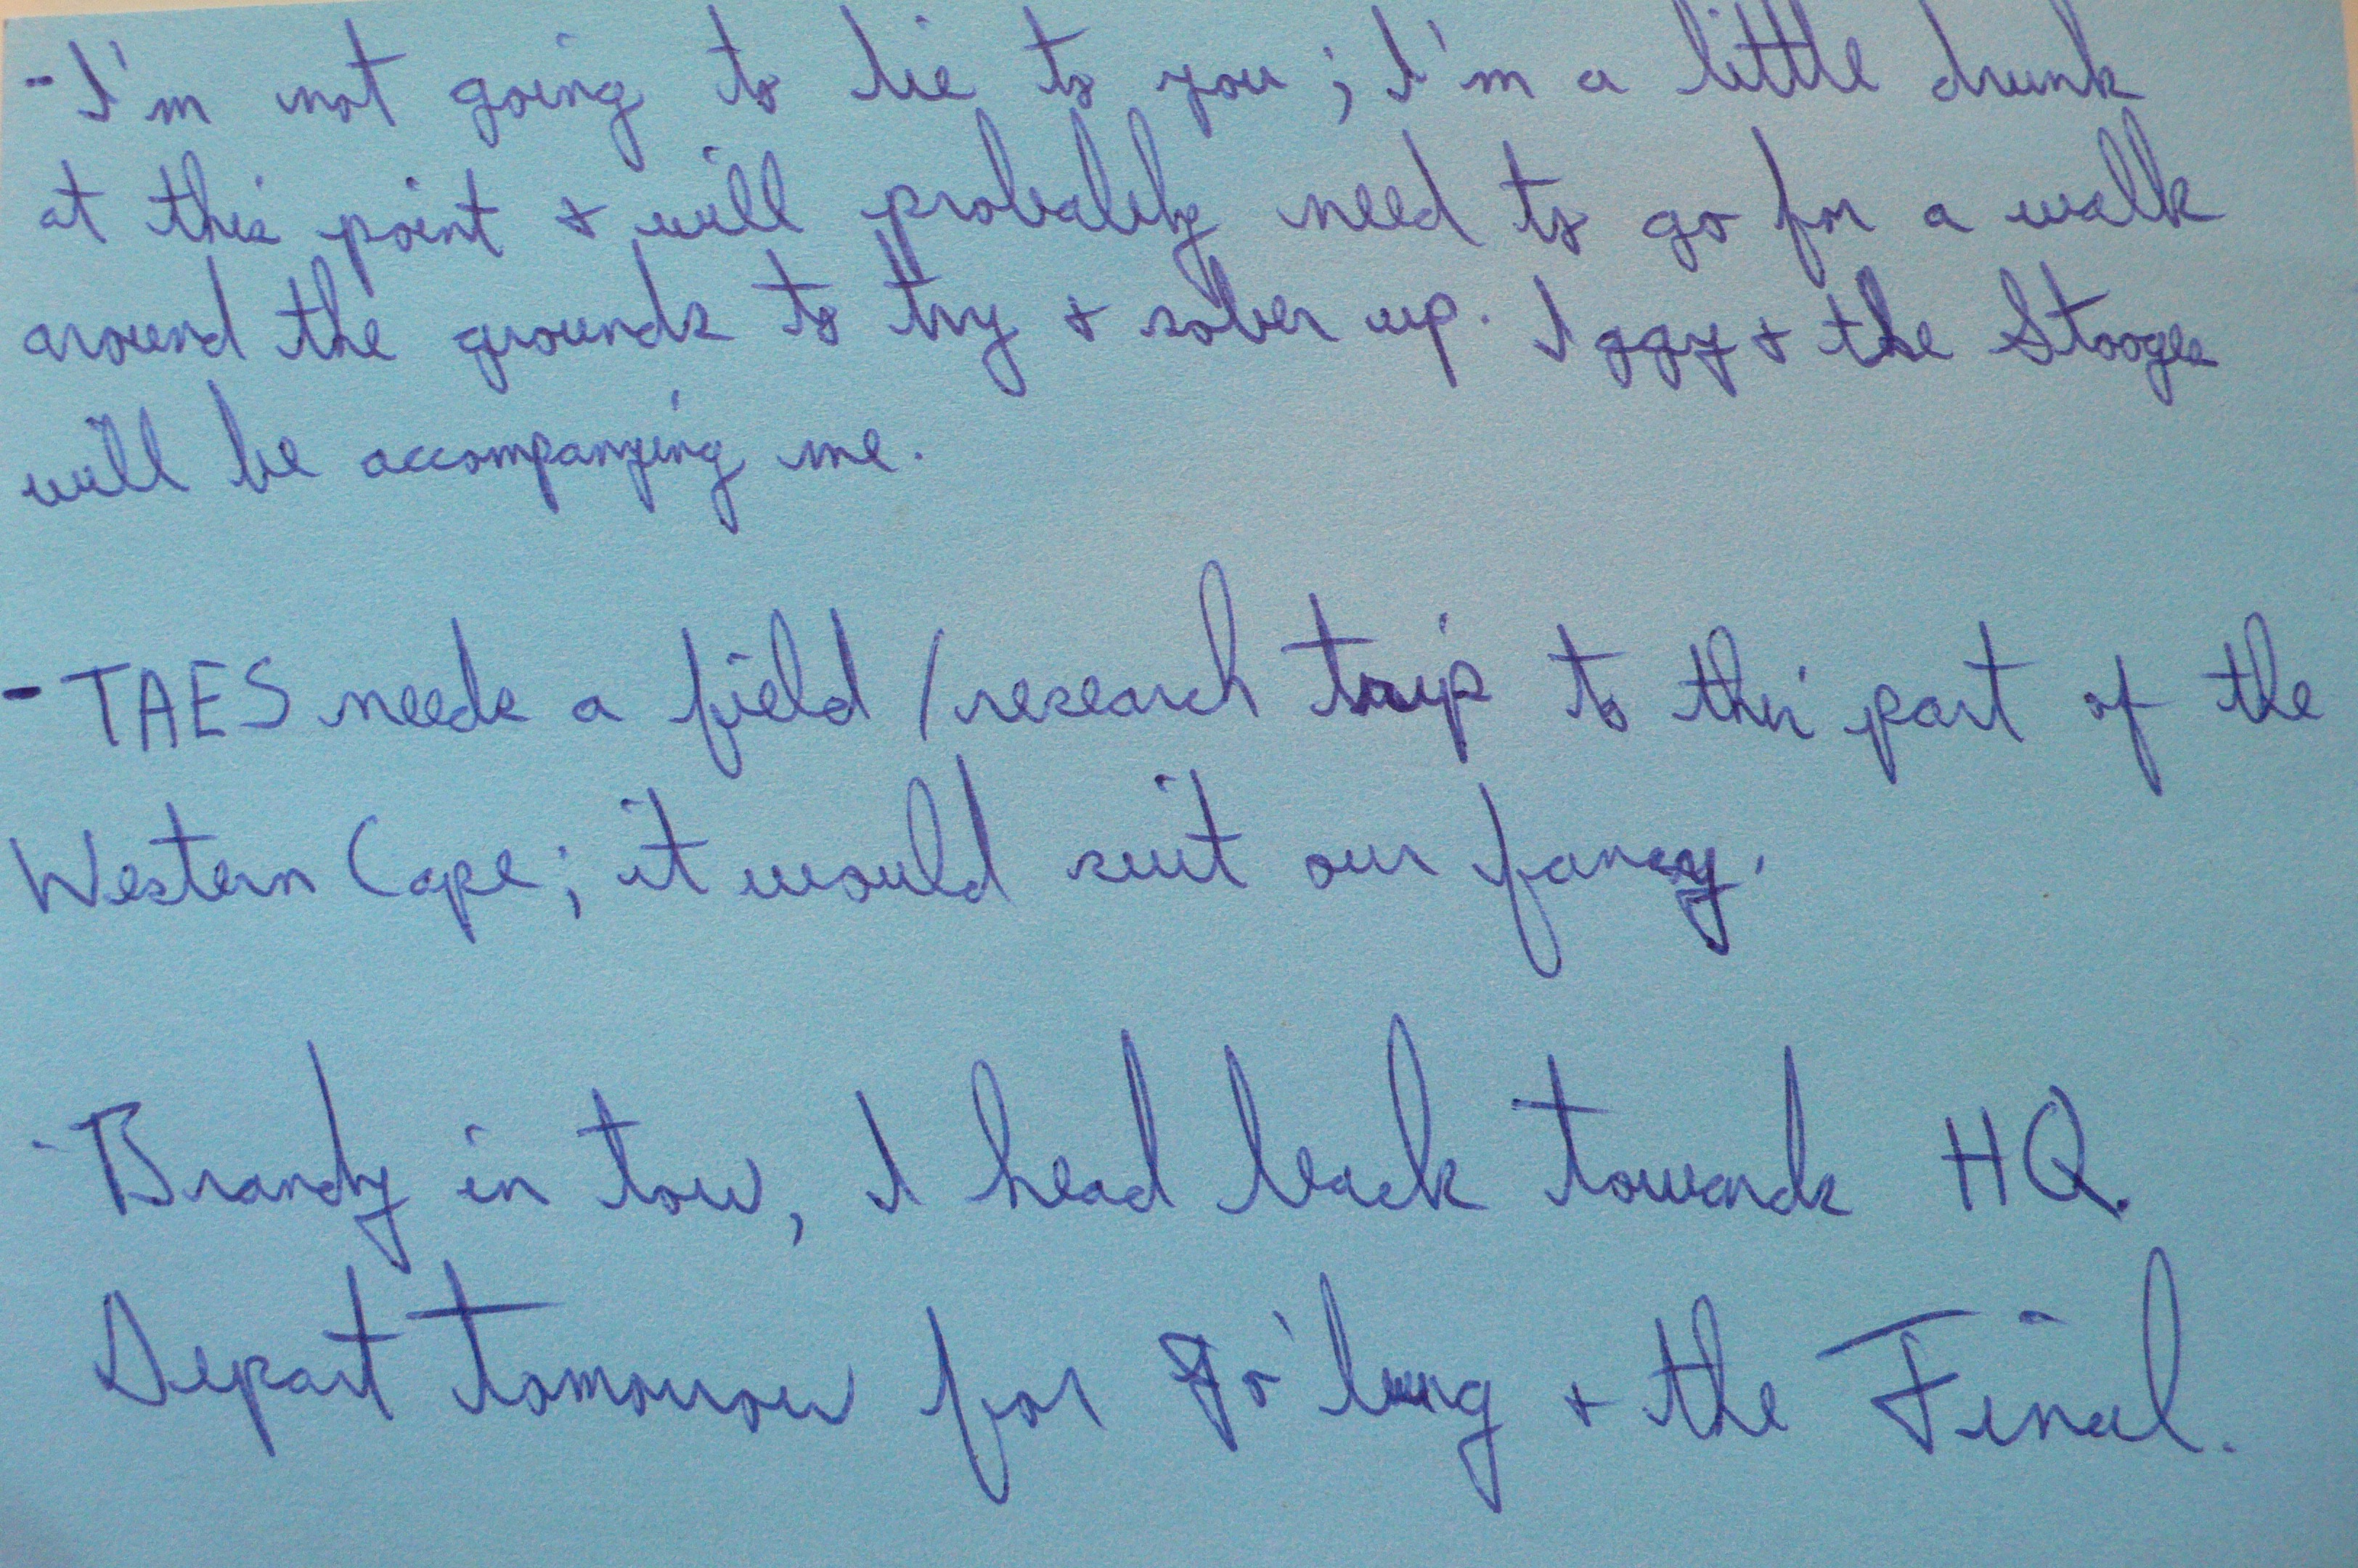 - I'm not going to lie to you; I'm a little drunk
at this point + will probably need to go for a walk
around the grounds to try + sober up. Iggy + the Stooges
will be accompanying me.
- TAES needs a field/research trip to this part of the
Western Cape; it would suit our fancy.
- Brandy in tow, I head back towards HQ.
Depart tomorrow for Jo'burg + the Final.